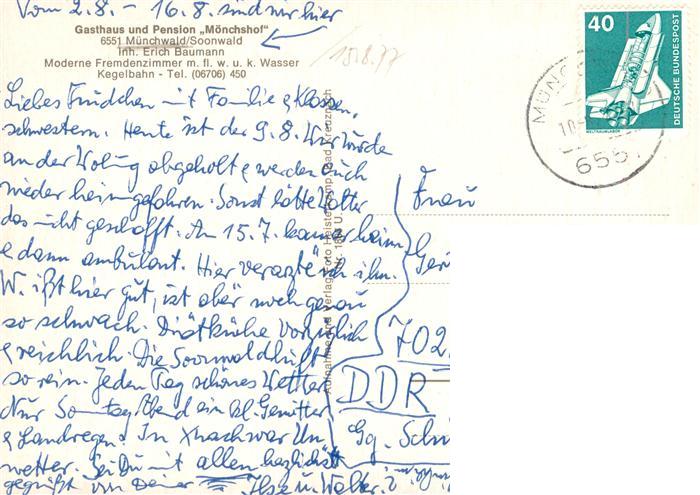 Vom 2.8. - 16.8. sind wir hier
Gasthaus und Pension „Mönchshof"
6551 Münchwald/Soonwald
Inh. Erich Baumann
Moderne Fremdenzimmer m. fl. w. u. k. Wasser
Kegelbahn - Tel. (06706) 450
15.8.77
40
DEUTSCHE BUNDESPOST
WELTRAUMLABOR
655
Liebes Friedchen mit Familie & Klassen-
schwestern. Heute ist der 9.8. Wir wurden
an der Wohng abgeholt & werden auch
wieder heimgefahren. Sonst hätte Walter
das nicht geschafft. Am 15.7. kam er heim
& dann ambulant. Hier verarzte ich ihn.
W. ißt hier gut, ist aber noch genau
so schwach. Diätküche vorzüglich
& reichlich. Die Soonwaldluft
so rein. Jeden Tag schönes Wetter
Nur Sonntag Abend ein kl. Gewitter
& Landregen. In war Un
wetter. Sei Du mit allen herzlichst
gegrüßt von Deiner Ilse u. Walter.
Frau
702
DDR